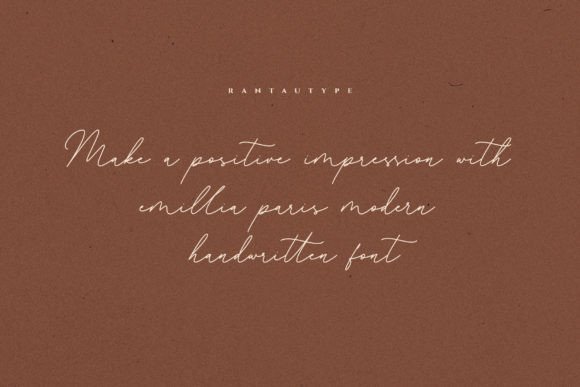 RANTAUTYPE
Make a positive impression with
emillia paris modern
handwritten font